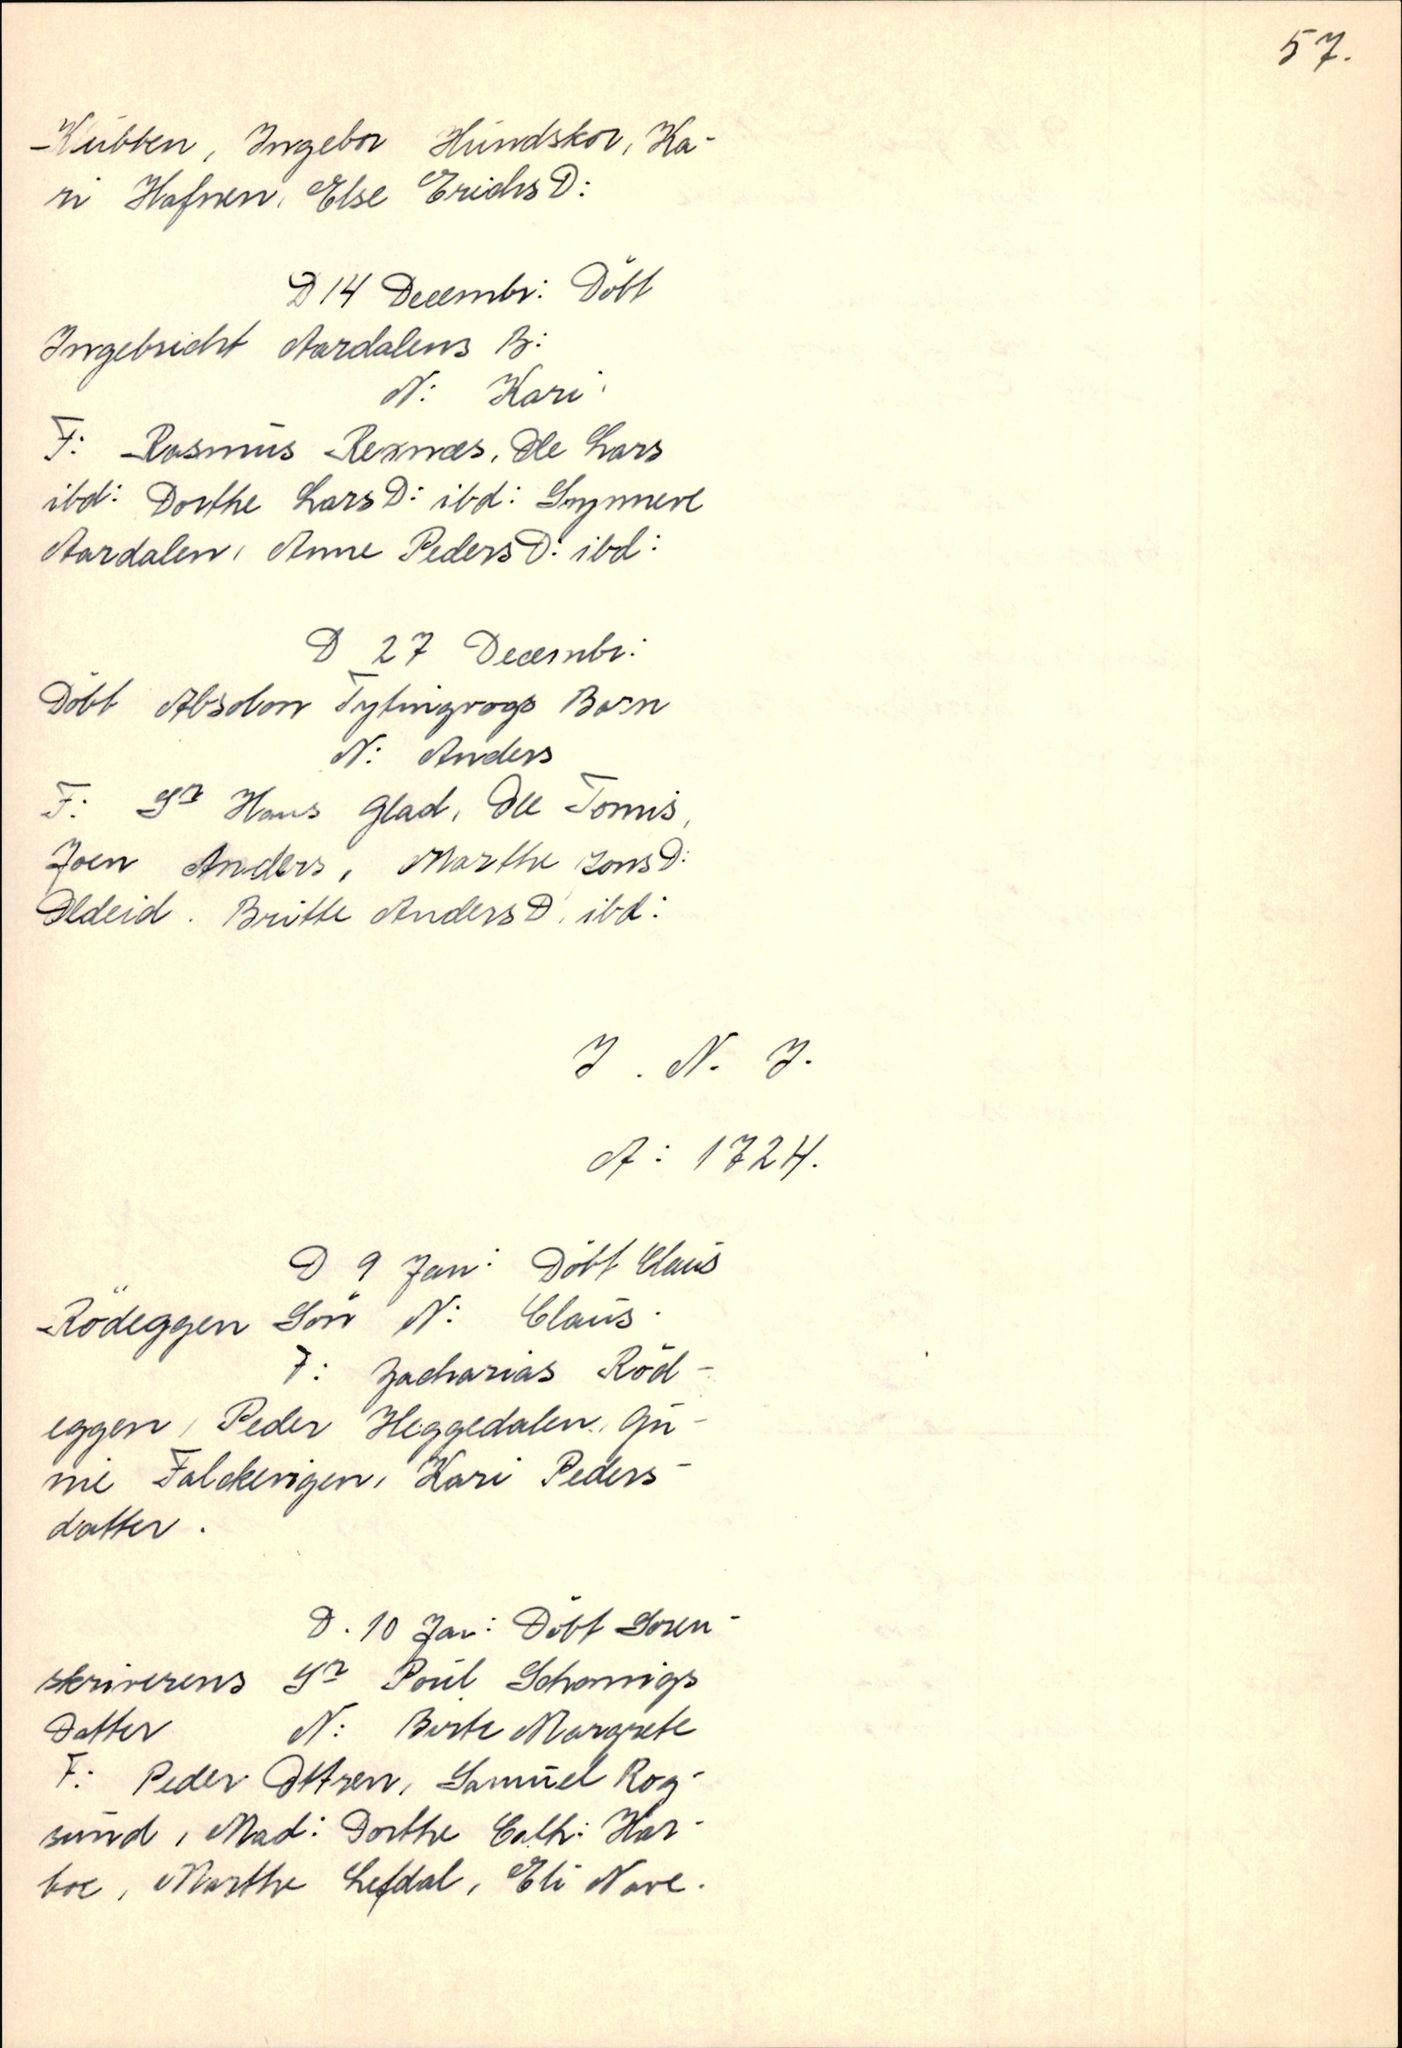 57.
Kubben, Ingebor Hundskor, Ka-
ri Hafnen, Else Erichs D:
D 14 Decembr: Döbt
Ingebricht Aardalens B:
N: Kari
F: Rasmus Rexnæs, Ole Lars
ibd: Dorthe Lars D: ibd: Synneve
Aardalen, Anne Peders D: ibd:
D 27 Decembr:
Döbt Absolon Tytingvogs Barn
N: Anders
F: Sr Hans Glad, Ole Tomis,
Joen Anders, Marthe Jons D:
Oldeid. Britte Anders D. ibd:
J. N. J.
A: 1724.
D 9 Jan: Döbt Claus
Rödeggen Sön N: Claus.
F: Zacharias Röd-
eggen, Peder Heggedalen, Gu-
nie Falckevigen, Kari Peders-
datter.
D. 10 Jan: Döbt Soren-
skriverens Sr Poul Schonnigs
Datter N: Birte Margrete
F: Peder Ottzen, Samuel Rog-
sund, Mad: Dorthe Cath: Har-
boe, Marthe Lefdal, Eli Nave.